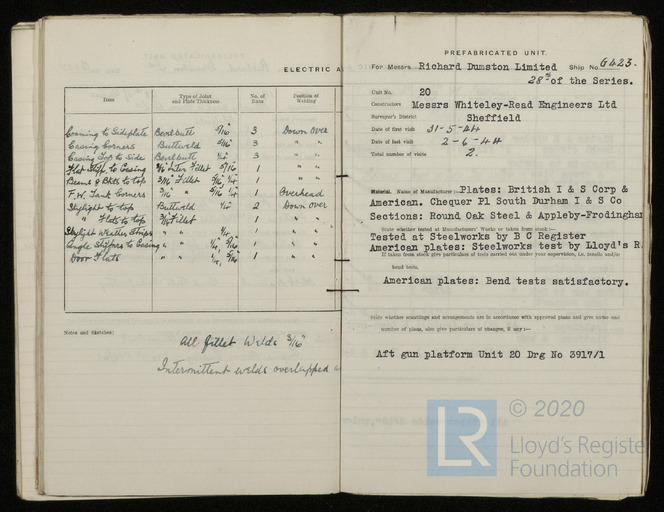 ELECTRIC A
Item Type of Joint and Plate Thickness No. of Runs Position of Welding
Coaming to Sideplate Bevel butt 5/16" 3 Down over
Casing Corners Buttweld 5/16" 3 " "
Casing Top to Side Bevel butt 1/4" 3 " "
to Casing Fillet 5/16 1 " "
Beams & Bkts to top 3/16" Fillet 1 " "
F.W. Tank Corners 1 Overhead
Skylight to top Buttweld 1/4" 2 Down over
" Flats to top Fillet 1 " "
Skylight Weather Strips " " 1 " "
Angle to Casing " " 1 " "
Door Flats " " 1 " "
Notes and Sketches:
All fillet Welds 3/16"
Intermittent welds overlapped
PREFABRICATED UNIT.
For Messrs Richard Dunston Limited Ship No. G423.
28th of the Series.
Unit No. 20
Constructors Messrs Whiteley-Read Engineers Ltd
Surveyor's District Sheffield
Date of first visit 31-5-44
Date of last visit 2-6-44
Total number of visits 2.
Material. Name of Manufacturer:— Plates: British I & S Corp &
American. Chequer Pl South Durham I & S Co
Sections: Round Oak Steel & Appleby-Frodingham
State whether tested at Manufacturers' Works or taken from stock:—
Tested at Steelworks by B C Register
American plates: Steelworks test by Lloyd's R.
If taken from stock give particulars of tests carried out under your supervision, i.e. tensile and/or
bend tests.
American plates: Bend tests satisfactory.
State whether scantlings and arrangements are in accordance with approved plans and give name and
number of plans, also give particulars of changes, if any:—
Aft gun platform Unit 20 Drg No 3917/1
LR
© 2020
Lloyd's Register
Foundation